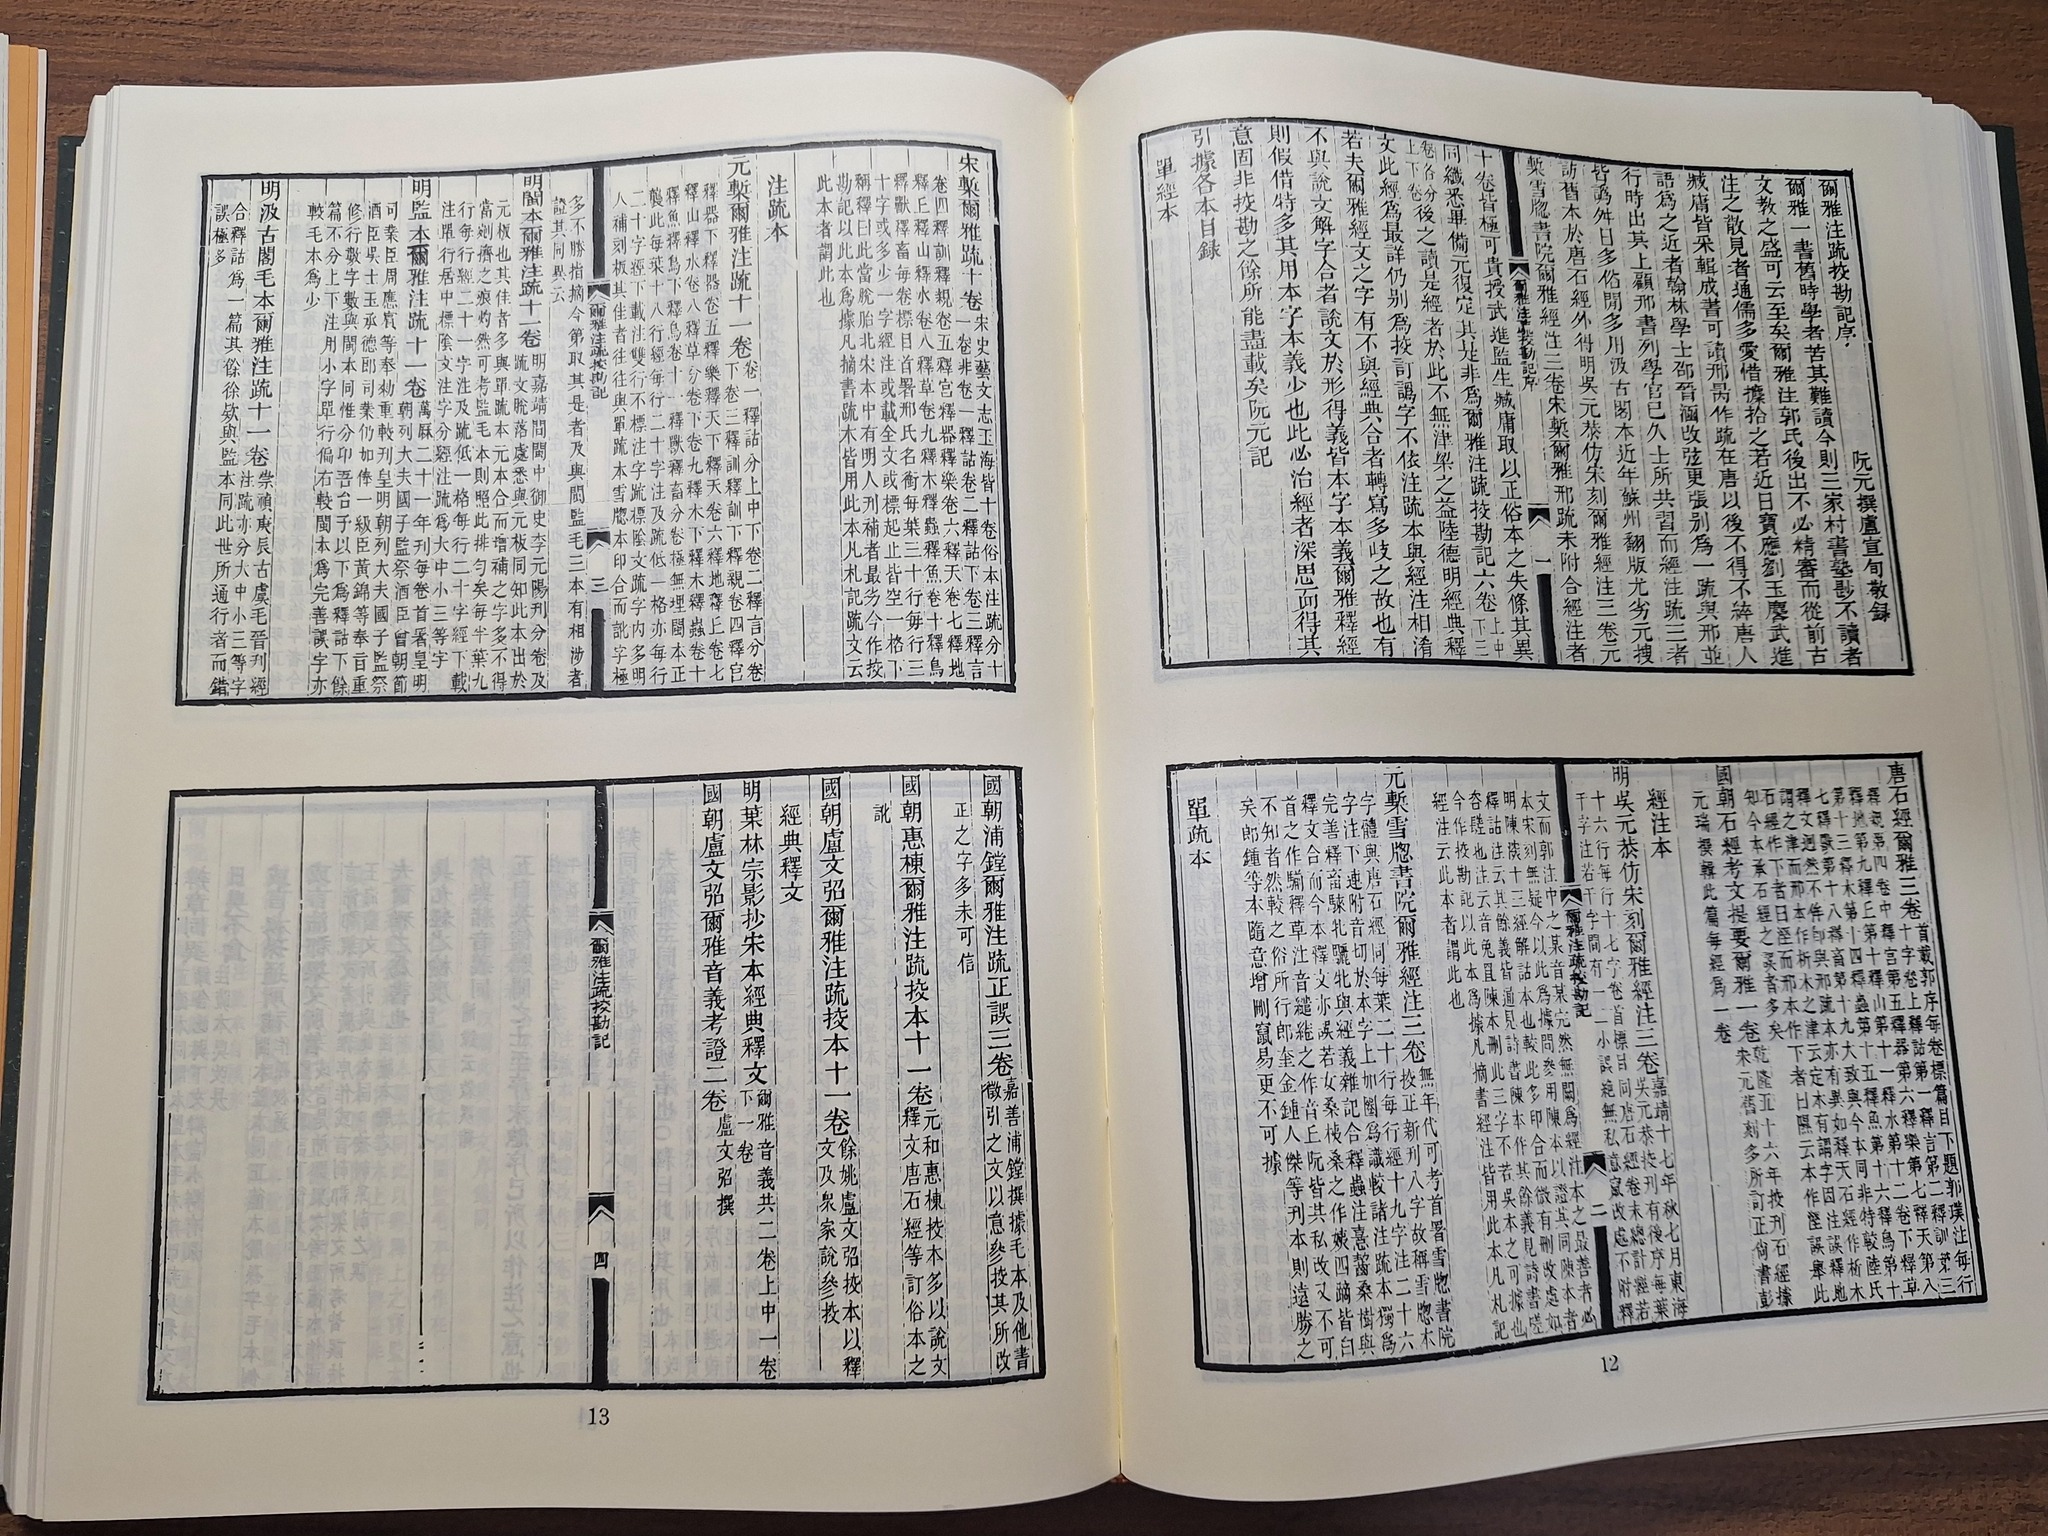 爾雅注疏挍勘記序
阮元撰盧宣旬敬錄
爾雅一書舊時學者苦其難讀今則三家村書塾尟不讀者
文教之盛可云至矣爾雅注郭氏後出不必精審而從前古
注之散見者通儒多愛惜攈拾之若近日寶應劉玉麐武進
臧庸皆采輯成書可讀邢昺作疏在唐以後不得不綷唐人
語爲之近者翰林學士邵晉涵改弦更張別爲一疏與邢並
行時出其上顧邢書列學官已久士所共習而經注疏三者
皆譌舛日多俗閒多用汲古閣本近年蘇州翻版尤劣元搜
訪舊本於唐石經外得明吳元恭仿宋刻爾雅經注三卷元
槧雪牕書院爾雅經注三卷宋槧爾雅邢疏未附合經注者
爾雅注疏挍勘記序
一
十卷皆極可貴授武進監生臧庸取以正俗本之失條其異
同纖悉畢備元復定其是非爲爾雅注疏挍勘記六卷上中
下三
卷各分
上下卷
後之讀是經者於此不無津梁之益陸德明經典釋
文此經爲最詳仍別爲挍訂譌字不依注疏本與經注相淆
若夫爾雅經文之字有不與經典合者轉寫多歧之故也有
不與說文解字合者說文於形得義皆本字本義爾雅釋經
則假借特多其用本字本義少也此必治經者深思而得其
意固非挍勘之餘所能盡載矣阮元記
引據各本目録
單經本
唐石經爾雅三卷
首載郭序每卷標篇目下題郭璞注每行
十字卷上釋詁第一釋言第二釋訓第三
釋親第四卷中釋宮第五釋器第六釋樂第七釋天第八
釋地第九釋丘第十釋山第十一釋水第十二卷下釋草
第十三釋木第十四釋蟲第十五釋魚第十六釋鳥第十
七釋獸第十八釋畜第十九大致與今本同非特較陸氏
釋文迥然不侔卽與邢疏本亦有異如釋天石經作析木
謂之津而邢本作析木之津云定本有謂字因注誤釋地
石經作下者曰隰而邢本作下者曰隰云本作溼誤舉此
知今本承石經之誤者多矣
國朝石經考文提要爾雅一卷
乾隆五十六年挍刊石經據
宋元舊刻多所訂正尙書彭
元瑞撰輯此篇每經爲一卷
經注本
明吳元恭仿宋刻爾雅經注三卷
嘉靖十七年秋七月東海
吳元恭挍刊有後序每葉
十六行每行十七字卷首標目同唐石經卷末總計經若
干字注若干字間有一二小誤絕無私意竄改處不附釋
爾雅注疏挍勘記
二
文而郭注中之某音某完然無闕爲經注本之最善者必
本宋刻無疑今以此爲據問參用陳本以證其同陳本者
明陳深十三經解詁本也較此多印合而微有刪改處如
釋詁注云其餘義皆通見詩書陳本作其餘義見詩書嗟
咨蹉也注云音兔罝陳本刪此三字不若吳本之可據也
今作挍勘記以此本爲據凡摘書經注皆用此本凡札記
經注云此本者謂此也
元槧雪牕書院爾雅經注三卷
無年代可考首署雪牕書院
挍正新刊八字故稱雪牕本
字體與唐石經同每葉二十行每行經十九字注二十六
字注下連附音切於本字上加圈爲識較諸注疏本獨爲
完善釋畜騋牝驪牡與經義雜記合釋蟲注蒽薔桑樹與
釋文合而今本釋文亦誤若女桑桋桑之作姨四蹢皆白
首之作騚釋草注音繾綣之作音丘阮皆共私改又不可
不知者然較之俗所行郎奎金鍾人傑等刊本則遠勝之
矣郎鍾等本隨意增刪竄易更不可據
單疏本
12
宋槧爾雅疏十卷
宋史藝文志玉海皆十卷俗本注疏分十
一卷非卷一釋詁卷二釋詁下卷三釋言
卷四釋訓釋親卷五釋宮釋器釋樂卷六釋天卷七釋地
釋丘釋山釋水卷八釋草卷九釋木釋蟲釋魚卷十釋鳥
釋獸釋畜每卷標目首署邢氏名銜每葉三十行每行三
十字或多少一字經注或載全文或標起止皆空一格下
稱釋曰此當脫胎北宋本中有明人刊補者最劣今作挍
勘記以此本爲據凡摘書疏本皆用此本凡札記疏文云
此本者謂此也
注疏本
元槧爾雅注疏十一卷
卷一釋詁分上中下卷二釋言分卷
下卷三釋訓釋訓下釋親卷四釋宫
釋器下釋器卷五釋樂天下釋天卷六釋地釋上卷七
釋山釋水卷八釋草分卷下卷九釋木下釋木釋蟲卷十
釋魚釋鳥下釋鳥卷十一釋獸釋畜分卷極無埋閩本正
襲此每葉十八行經每行二十字注及疏低一格亦每行
二十字經下載注雙行不標注字疏標陰文疏字内多明
人補刻板其佳者往往與單疏本雪牕本印合而訛字極
爾雅注疏挍勘記
三
多不勝指摘今第取其是者及與閩監毛三本有相涉者
證其同異云
明閩本爾雅注疏十一卷
明嘉靖閒閩中御史李元陽刋分卷及
疏文脫落處悉與元板同知此本出於
元板也其佳者多與單疏本元本合而增補之字多不得
當剜擠之痕灼然可考監毛本則照此排勻矣每半葉九
行每行經二十一字注及疏低一格每行二十字經下載
注單行居中標陰文注字分經注疏爲大中小三等字
明監本爾雅注疏十一卷
萬厤二十一年刋每卷首署皇明
朝列大夫國子監祭酒臣曾朝節
司業臣周應賓等奉勑重較刋皇明朝列大夫國子監祭
酒臣吳士玉承德郎司業仍如俸一級臣黃錦等奉旨重
修行數字數與閩本同惟分卬吾台予以下爲釋詁下餘
篇不分上下注用小字單行偏右較閩本爲完善誤字亦
較毛本爲少
明汲古閣毛本爾雅注疏十一卷
崇禎庚辰古虞毛晉刋經
注疏亦分大中小三等字
合釋詁爲一篇其餘徐欵與監本同此世所通行者而錯
誤極多
國朝浦鏜爾雅注疏正誤三卷
嘉善浦鏜撰據毛本及他書
徵引之文以意參挍其所改
正之字多未可信
國朝惠棟爾雅注疏挍本十一卷
元和惠棟挍本多以說文
釋文唐石經等訂俗本之
訛
國朝盧文弨爾雅注疏挍本十一卷
餘姚盧文弨挍本以釋
文及衆家說參挍
經典釋文
明葉林宗影抄宋本經典釋文
爾雅音義共二卷上中一卷
下一卷
國朝盧文弨爾雅音義考證二卷
盧文弨撰
爾雅注疏挍勘記
四
13